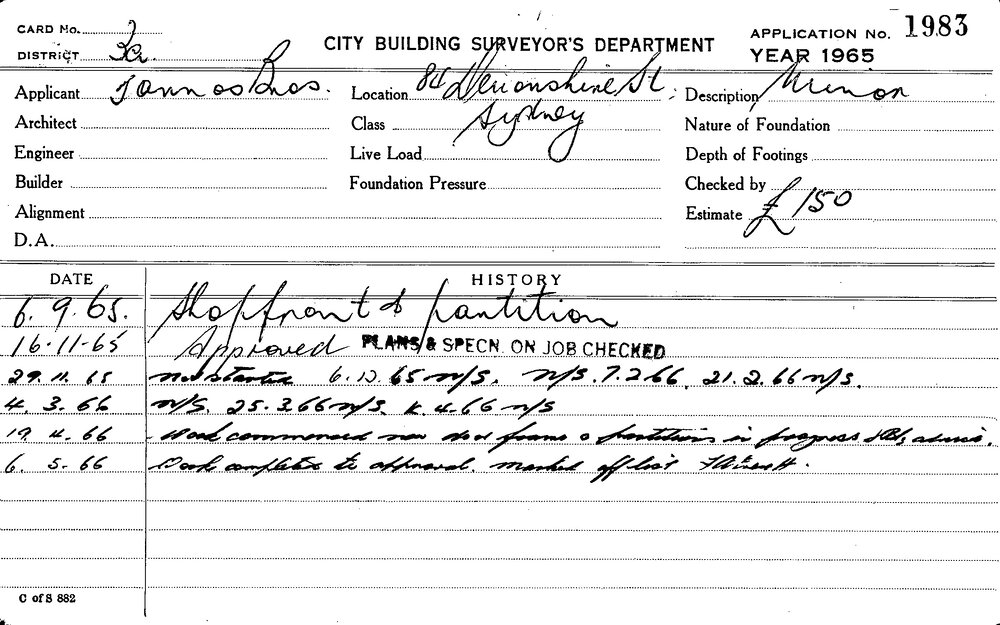 CARD No. 2
APPLICATION No. 1983
DISTRICT 3a.
CITY BUILDING SURVEYOR'S DEPARTMENT
YEAR 1965
Applicant Bros.
Location 84 Devonshire St,
Description Minor
Architect
Class Sydney
Nature of Foundation
Engineer
Live Load
Depth of Footings
Builder
Foundation Pressure
Checked by
Alignment
Estimate £150
D.A.
DATE HISTORY
6. 9. 65. Shopfront & partition
16-11-65 Approved PLANS & SPECN. ON JOB CHECKED
29. 11. 65 not started 6.12.65 n/s. n/s. 7.2.66. 21.2.66 n/s.
4. 3. 66 n/s. 25.3.66 n/s. 4.66 n/s
19. 4. 66 Work commenced new door frame & partitions in progress
6. 5. 66 Work completed to approval. marked off list
C of S 882